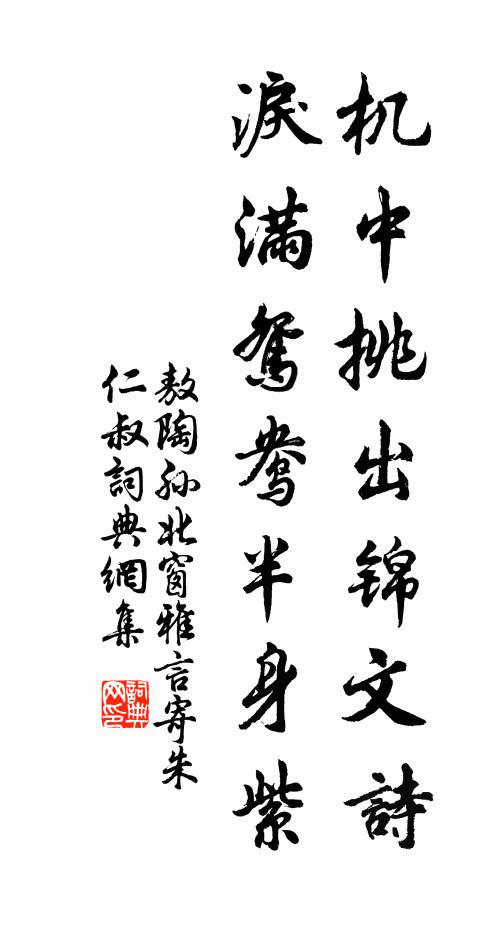 机中挑出锦文詩
淚滿鴛鴦半身紫
敖陶孙北窗雅言寄朱
仁叔詞典網集
詞典网印